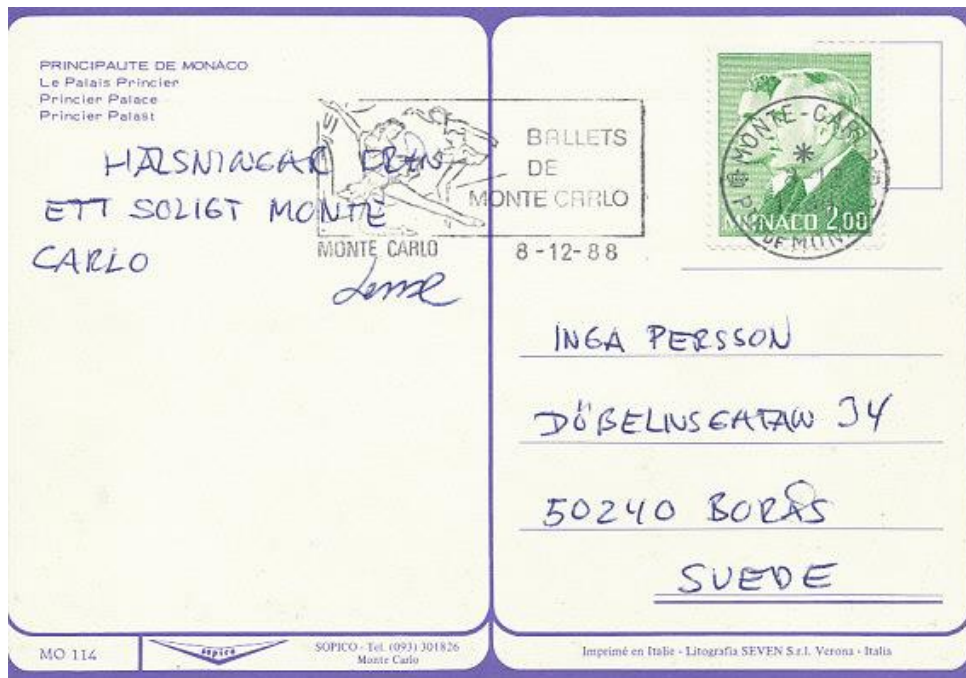 PRINCIPAUTE DE MONACO
Le Palais Princier
Princier Palace
Princier Palast
HÄLSNINGAR FRÅN
ETT SOLIGT MONTE
CARLO
BALLETS
DE
MONTE CARLO
MONTE CARLO 8-12-88
MONTE-CAR
MONACO 2,00
INGA PERSSON
DÖBELNSGATAN 34
50240 BORÅS
SUEDE
MO 114
sopico
SOPICO - Tel. (093) 301826
Monte Carlo
Imprimé en Italie - Litografia SEVEN S.r.l. Verona - Italia